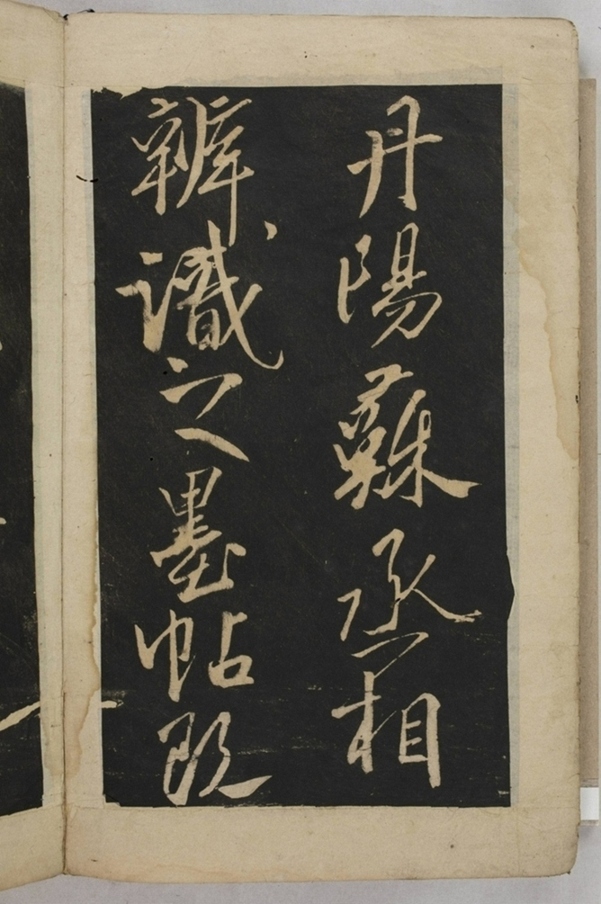 丹陽蘇丞相
辨識之墨帖既